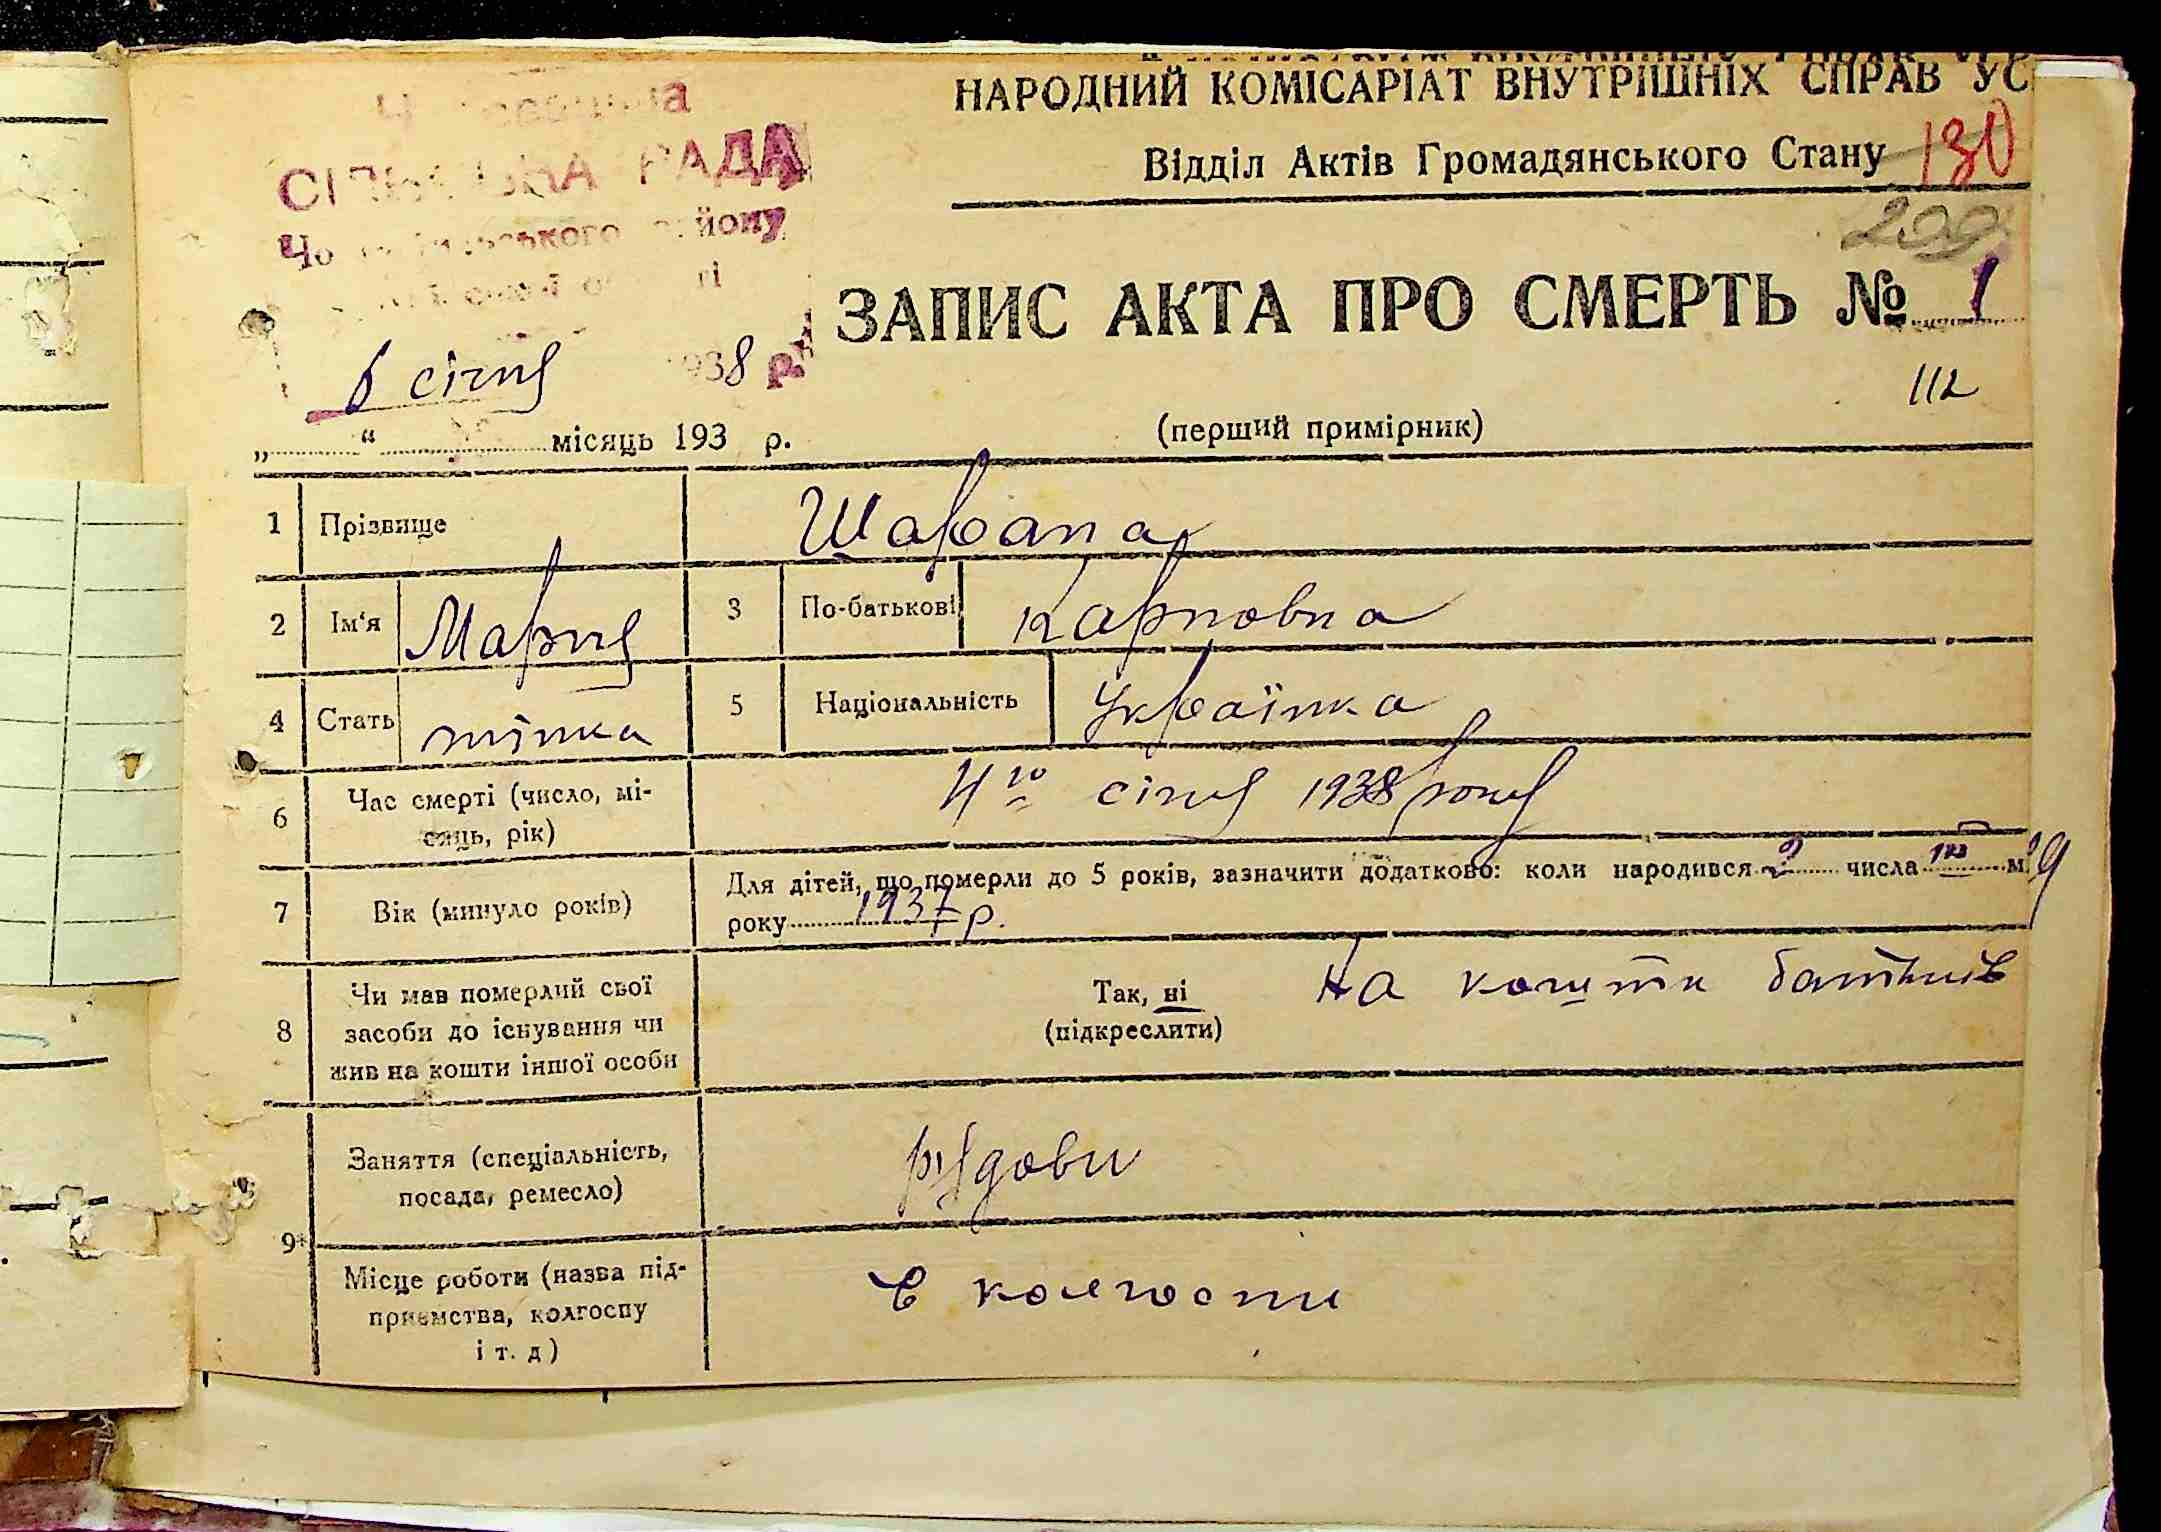 НАРОДНИЙ КОМІСАРІАТ ВНУТРІШНІХ СПРАВ УС
Відділ Актів Громадянського Стану
130
209
СІЛЬСЬКА РАДА
району
6 січня 1938 р.
ЗАПИС АКТА ПРО СМЕРТЬ № 1
112
„ “ місяць 193 р.
(перший примірник)
1 Прізвище Шарапа
2 Ім‘я Мария 3 По-батькові Карповна
4 Стать жінка 5 Національність Українка
6 Час смерті (число, мі-
сяць, рік)
4го січня 1938 року
7 Вік (минуло років)
Для дітей, що померли до 5 років, зазначити додатково: коли народився 2 числа м.
року 1937 р.
8 Чи мав померлий свої
засоби до існування чи
жив на кошти іншої особи
Так, ні
(підкреслити)
на кошти батьків
9 Заняття (спеціальність,
посада, ремесло)
рядови
Місце роботи (назва під-
приємства, колгоспу
і т. д)
в колгоспи